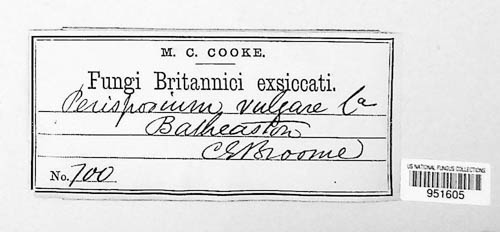 M. C. COOKE.
Fungi Britannici exsiccati.
Perisporium vulgare Ca
Batheaston
CEBroome
No. 700
US NATIONAL FUNGUS COLLECTIONS
951605